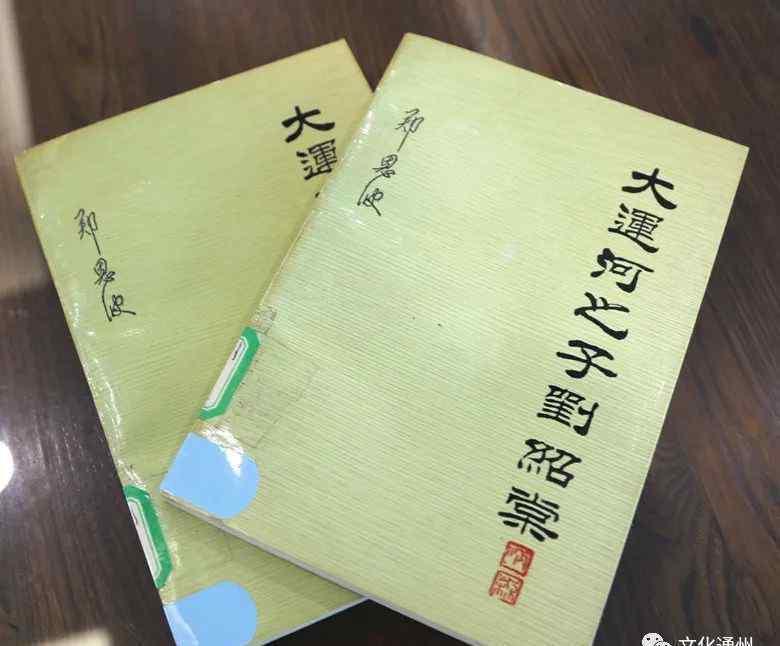 大運
郑恩波
郑恩波
大運河之子劉紹棠
文化通州